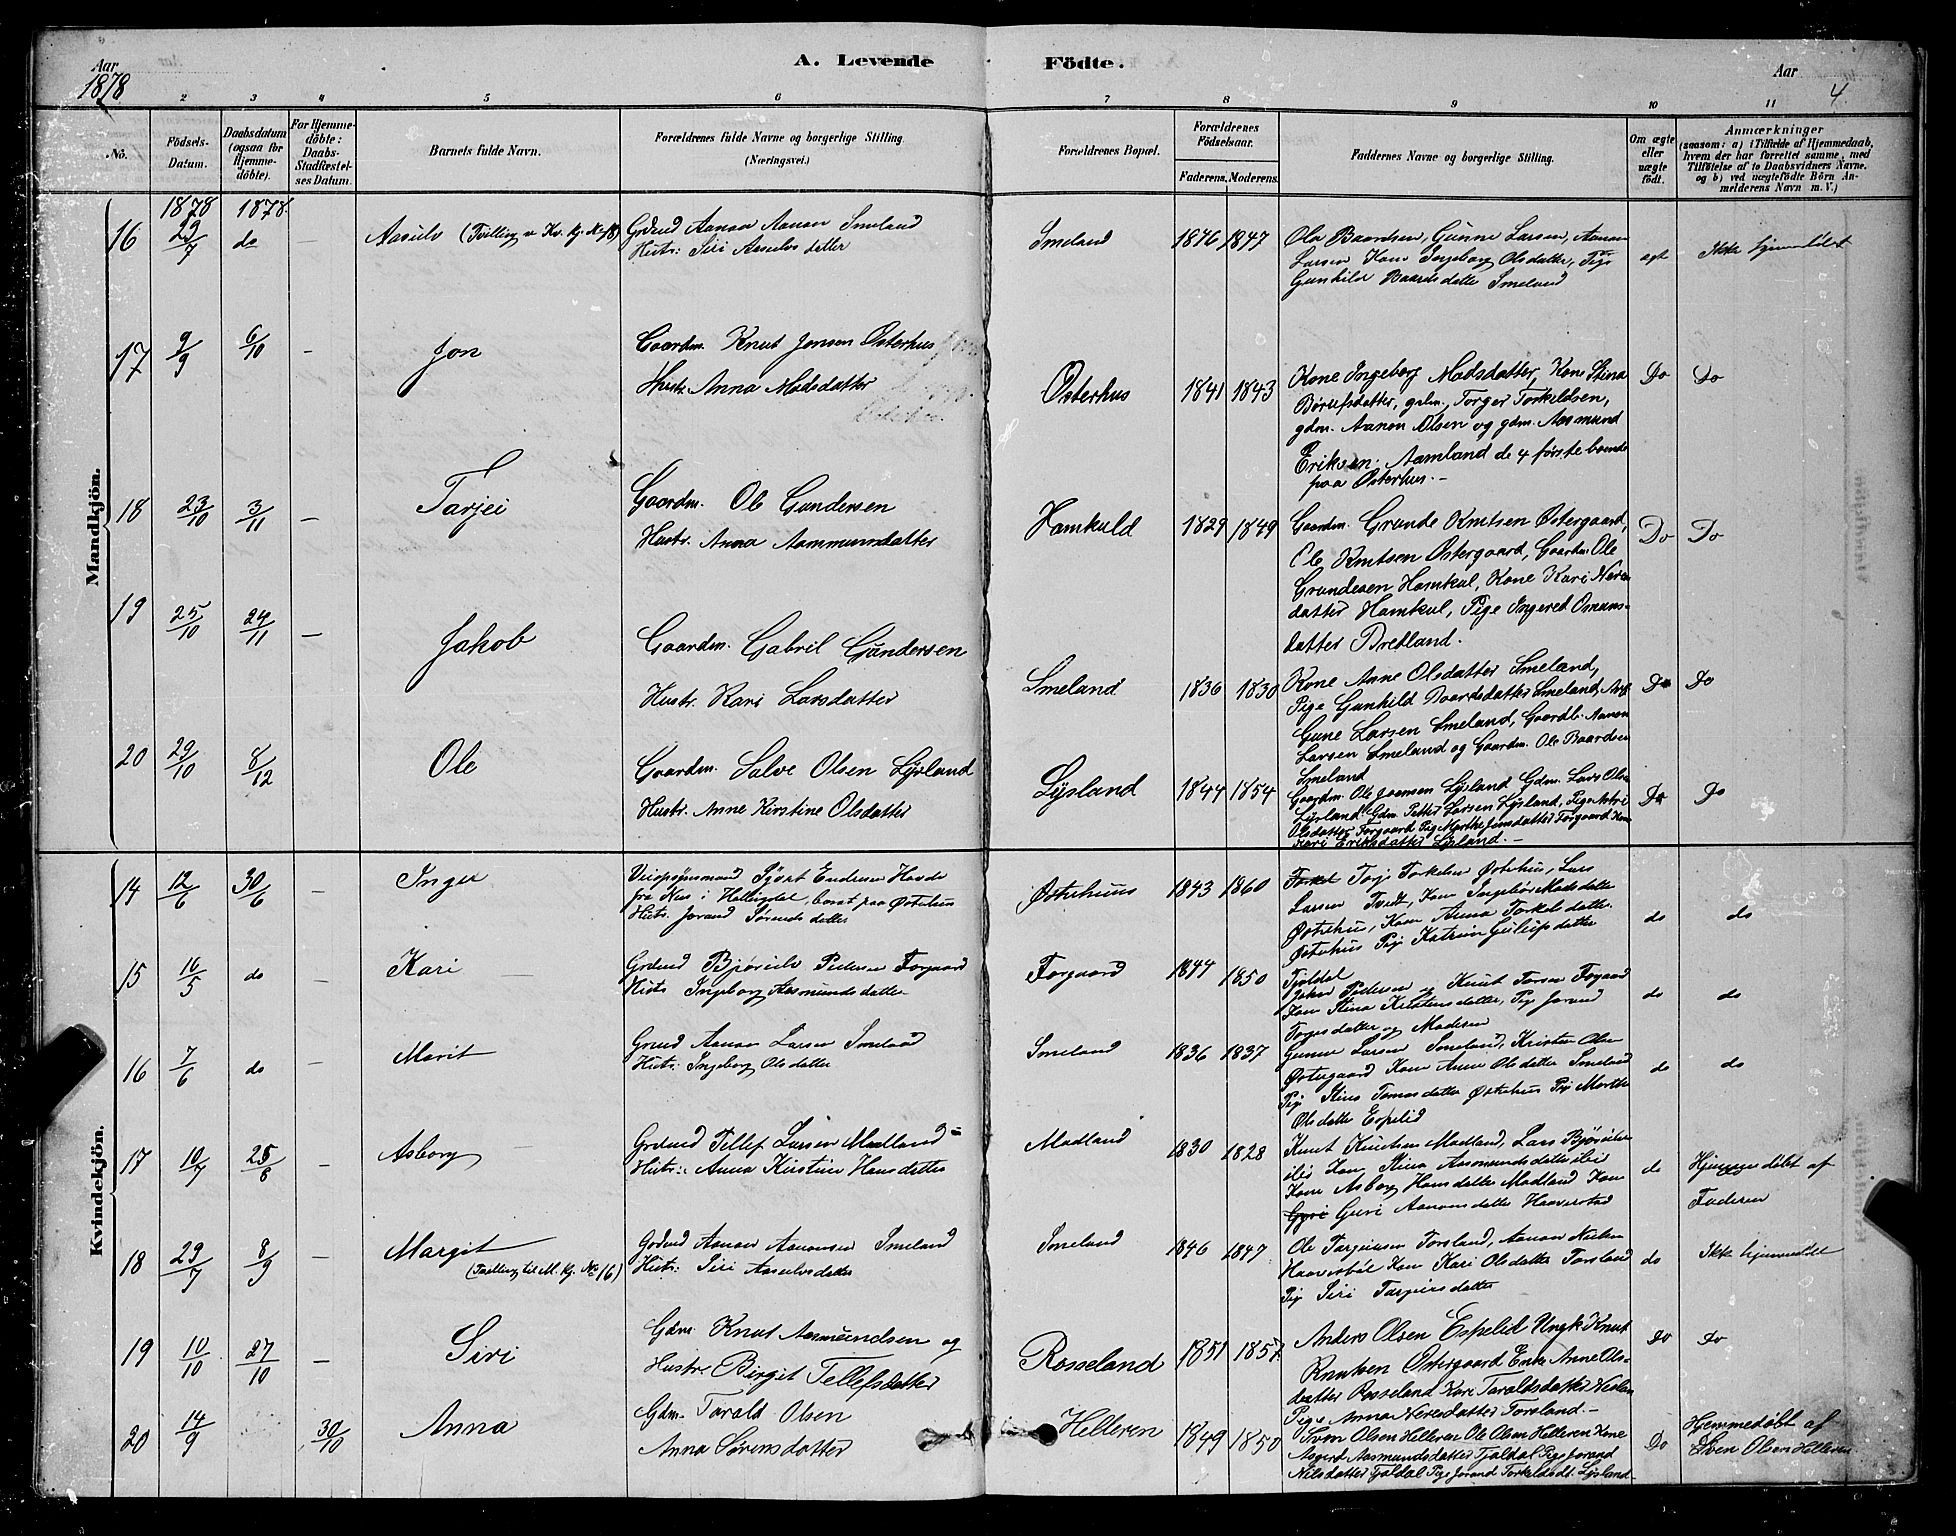 Aar
1878
A. Levende
Födte.
Aar
4
2 3 4 5 6 7 8 9 10 11
No.
Födsels-
Datum.
Daabsdatum
(ogsaa for
Hjemme-
döbte).
For Hjemme-
döbte:
Daabs-
Stadfæstel-
ses Datum.
Barnets fulde Navn.
Forældrenes fulde Navne og borgerlige Stilling
(Næringsvei.)
Forældrenes Bopæl.
Forældrenes
Födselsaar.
Faderens. Moderens.
Faddernes Navne og borgerlige Stilling.
Om ægte
eller
uægte
födt.
Anmærkninger
(saasom: a) i Tilfælde af Hjemmedaab,
hvem der har forrettet samme, med
Tilföielse af to Daabsvidners Navne,
og b) ved uægtefödte Börn An-
melderens Navn m. V.)
Mandkjön.
1878 1878.
16 29/7 do — Aasulv (Tvilling v Kv. kj. No 18)
Aanon Aanon Smeland
Hustr: Siri Aasulvsdatter
Smeland 1846 1847
Ole Baardsen, Gunne Larsen, Aanon
Larsen Kone Ingeborg Olsdatter, Pige
Gunhild Baardsdatter Smeland
ægt
Ikke hjemmedøbt
17 9/9 6/10 — Jon
Gaardm. Knut Jonsen Østerhus
Hustr. Anna Madsdatter
Østerhus 1841 1843
Kone Ingeborg Madsdatter, Kone Stina
Børufsdatter, gdm. Torger Torkildsen,
gdm. Aanon Olsen og gdm. Aasmund
Eriksen Aamland de 4 første boende
paa Østerhus. —
Do Do
18 23/10 3/11 — Tarjei
Gaardm. Ole Gundersen
Hustr. Anna Aanmunsdatter
Hamkuld 1829 1849
Gaardm. Grunde Knutsen Østergaard,
Ole Knutsen Østergaard, Gaardm. Ole
Grundesen Hamkul, Kone Kari
datter Hamkul, Pige Ingered Omuns-
datter Bredland.
Do Do
19 25/10 24/11 — Jakob
Gaardm. Gabril Gundersen
Hustr. Kari Larsdatter
Smeland 1836 1830
Kone Anne Olsdatter Smeland,
Pige Gunhild Baardsdatter Smeland,
Gune Larsen Smeland, Gaardb. Aanon
Larsen Smeland og Gaardm. Ole Baardsen
Smeland
Do Do
20 29/10 8/12 Ole
Gaardm. Salve Olsen Lysland
Hustr. Anne Kirstine Olsdatter
Lysland 1844 1854
Gaardm. Ole Joansen Lysland Gdm. Lars Olsen
Lysland Gdm. Petter Larsen Lysland, Pige
Olsdatter Forgaard Pig Marthe Jensdatter Forgaard Kone
Kari Eriksdatter Lysland. —
Do Do
Kvindekjön.
14 12/6 30/6 — Inger
Endresen Hovde
fra Næs i Hallingdal, bosat paa Østerhus
Hustr. Jorand Sørensdatter
Østerhuus 1843 1860
Torkel Torj Torkelsen Østerhus, Lars
Larsen Tvedt, Kone Ingebor Madsdatter
Østerhus, Kone Anna Torkelsdatter
Østerhus Pige Katrine
Fjeldal
do do
15 16/5 do Kari —
Bjørulv Pedersen Forgaard
Hustr Ingeborg Aasmundsdatter
Forgaard 1844 1850
Pedersen og Knut Torsen Forgaard
Kone Stina Kristensdatter, Pige Jorand
Torgesdatter og Moderen
do do
16 7/6 do Marit
Aanon Larsen Smeland
Hustr: Ingeborg Olsdatter
Smeland 1836 1837
Gunne Larsen Smeland, Kristen Olsen
Østergaard Kone Anne Olsdatter Smeland
Pige Stina Tomasdatter Østerhus Pige Marthe
Olsdatter Espelid
do do
17 10/7 25/8 — Asborg
Tellef Larsen Madland
Hustr: Anna Kirstine Hansdatter
Madland 1830 1828
Knut Knutsen Madland, Lars Bjørulvsen
ibid. Kone Stina Aasmundsdatter ibid
Kone Asborg Hansdatter Madland Kone
Guri Aanonsdatter Haaverstad
do
Hjemmedøbt af
Faderen
18 29/7 8/9 — Margit
(Tvilling til M. kj. No 16)
Aanon Aanonsen Smeland
Hustr: Siri Aasulvsdatter
Smeland 1846 1847
Ole Targiusen Forsland, Aanon Nielsen
Kone Kari Olsdatter Forsland
Pige Siri Targiersdatter
do
Ikke hjemmedøbt
19 10/10 27/10 — Siri
Gdm Knut Aasmundsen og
Hustr. Birgit Tellefsdatter
Rosseland 1851 1857
Anders Olsen Espelid Ungk Knut
Knutsen Østergaard Enke Anne Ols-
datter Rosseland Kari Taraldsdatter
Pige Anna Neresdatter Forsland. —
Do Do
20 14/9 30/10 Anna
Gdm. Tarald Olsen
Anna Sørensdatter
Helleren 1849 1850
Sven Olsen Helleren Ole Olsen Helleren Kone
Aasmundsdatter Fjaldal Pige Jorand
Nilsdatter Fjaldal Pige Jorand Torkeldsdt. Lysland
Do
Hjemmedøbt af
Sven Olsen Helleren